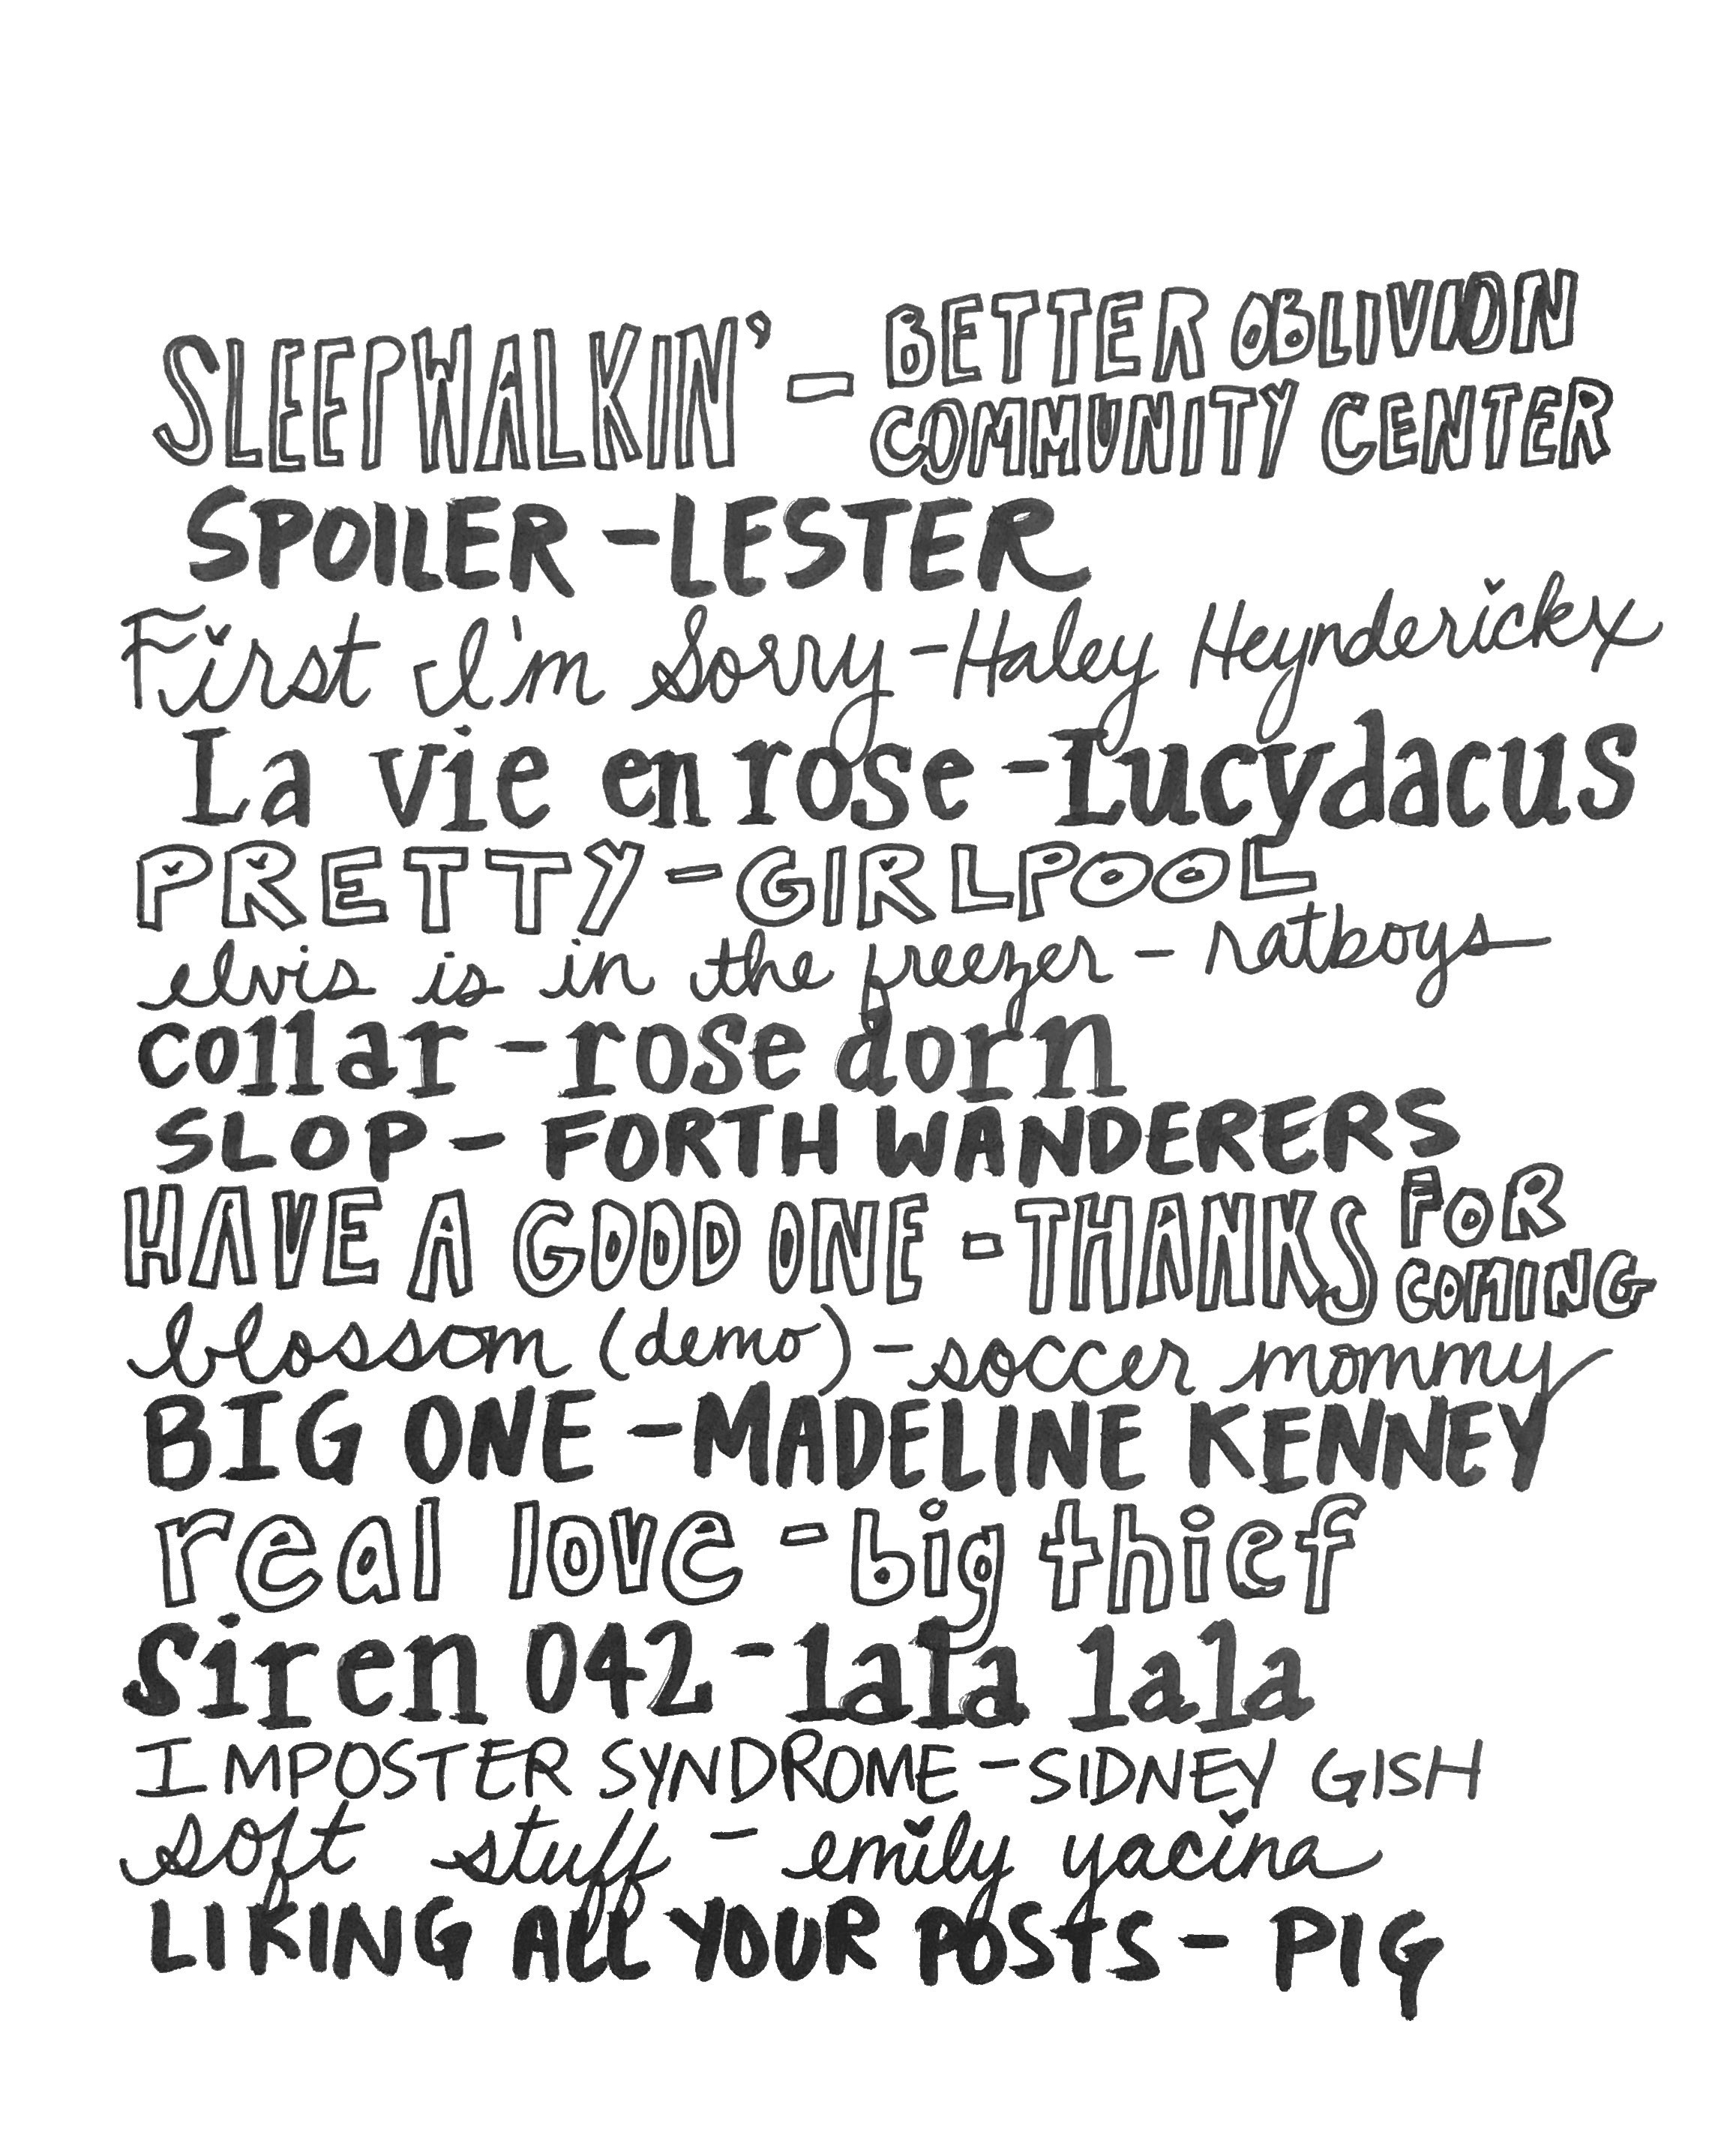 SLEEPWALKIN' - BETTER OBLIVION
COMMUNITY CENTER
SPOILER - LESTER
First I'm Sorry - Haley Heynderickx
La vie en rose - Lucy dacus
PRETTY - GIRLPOOL
elvis is in the freezer - ratboys
collar - rose dorn
SLOP - FORTH WANDERERS
HAVE A GOOD ONE - THANKS FOR
COMING
blossom (demo) - soccer mommy
BIG ONE - MADELINE KENNEY
real love - big thief
Siren 042 - lala lala
IMPOSTER SYNDROME - SIDNEY GISH
soft stuff - emily yacina
LIKING ALL YOUR POSTS - PIG